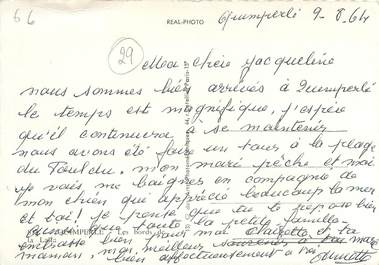 66
REAL-PHOTO
Quimperlé 9-8-64
29
Ma chère Jacqueline
nous sommes bien arrivés à Quimperlé
le temps est magnifique, j'espère
qu'il continuera à se maintenir
nous avons été faire un tour à la plage
du Pouldu, mon mari pêche et moi
je vais me baigner en compagnie de
mon chien qui apprécie beaucoup la mer
et toi! je pense que tu te repose bien
ainsi que toute la petite famille
embrasse bien pour moi et ta
maman, mon meilleur souvenir
bien affectueusement à toi